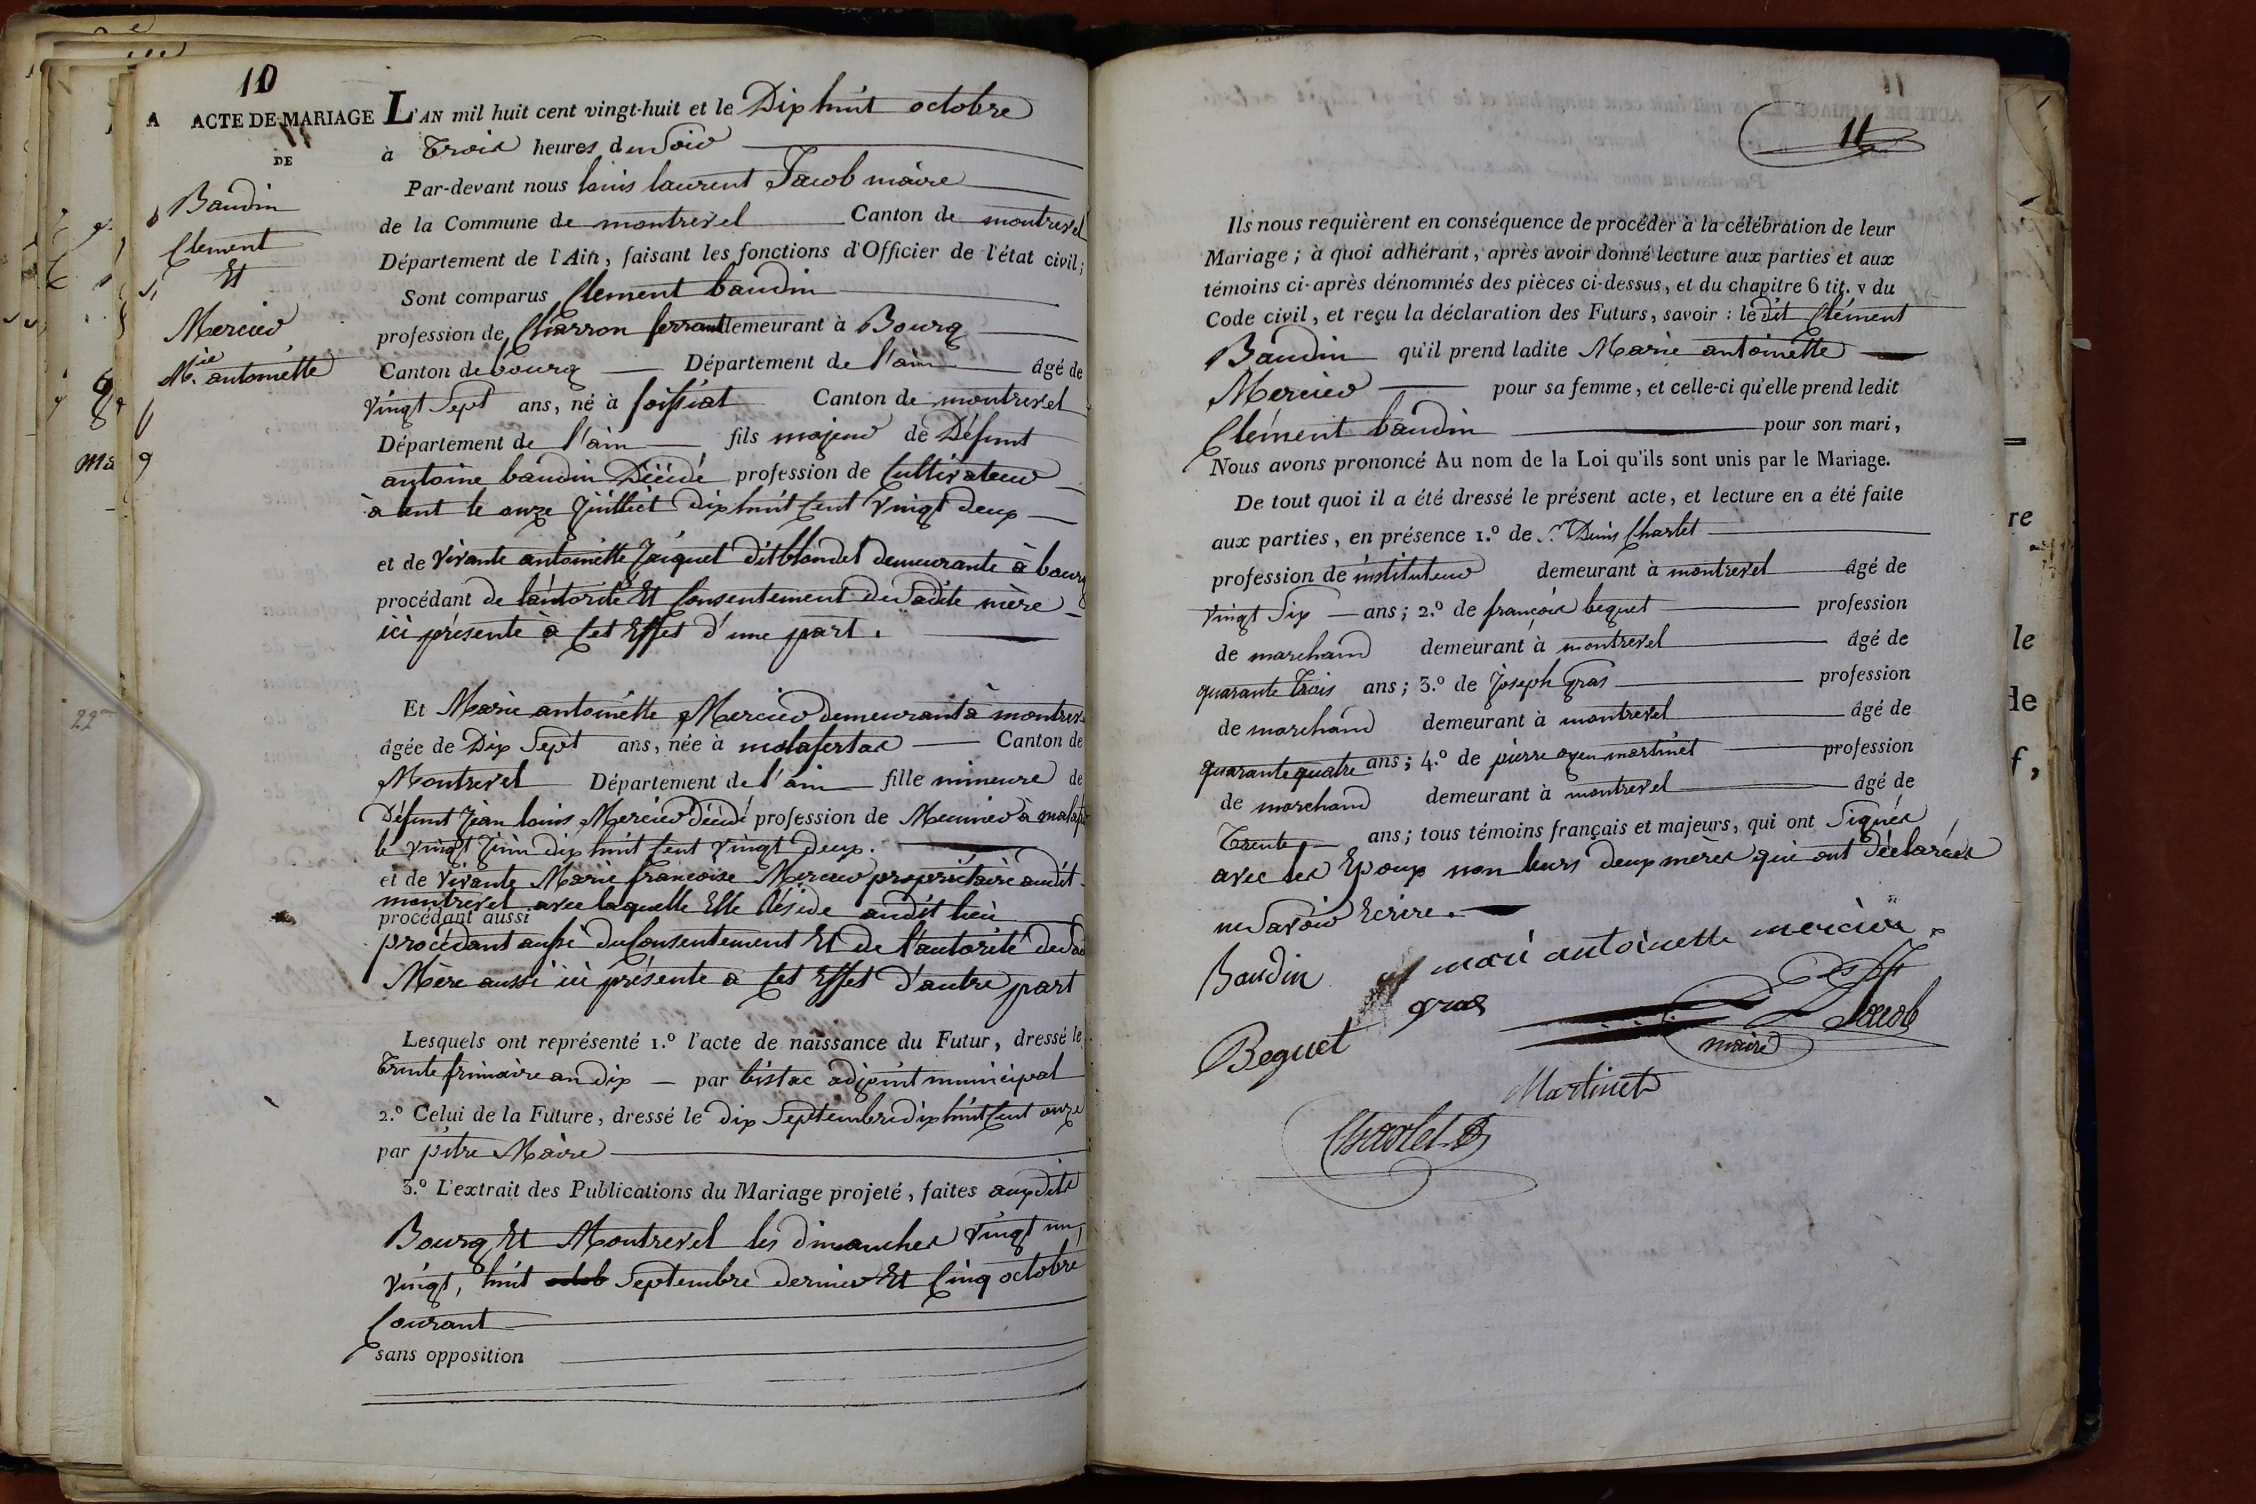 10
A ACTE DE MARIAGE
11
DE
Baudin
Clement
Et
Mercier
M.ie antoinette
L'AN mil huit cent vingt-huit et le Dix huit octobre
à Trois heures du Soir
Par-devant nous louis laurent Jacob maire
de la Commune de montrevel Canton de montrevel
Département de l'Ain, faisant les fonctions d'Officier de l'état civil;
Sont comparus Clement baudin
profession de Charron ferrant demeurant à Bourg
Canton de bourg Département de l'ain âgé de
vingt Sept ans, né à foissiat Canton de montrevel
Département de l'ain fils majeur de Défunt
antoine baudin Décédé profession de Cultivateur
à lent le onze Juilliet dix huit Cent vingt deux
et de vivante antoinette Jaiquet dit blondel demeurante à bourg
procédant de l'autorité Et Consentement de Sadite mère
ici présente à Cet Effet d'une part.
Et Marie antoinette Mercier demeurant à montrevel
âgée de Dix Sept ans, née à malafertac Canton de
Montrevel Département de l'ain fille mineure de
Défunt Jean louis Mercier décédé profession de Meunier à
le vingt Juin dix huit Cent vingt deux.
et de vivante Marie francoise Mercier propriétaire audit
montrevel avec laquelle Elle Réside audit lieu
procédant aussi
procédant aussi du Consentement Et de l'autorité de
Mère aussi ici présente a Cet Effet d'autre part
Lesquels ont représenté 1.º l'acte de naissance du Futur, dressé le
Trente frimaire an dix par bistac adjoint municipal
2.º Celui de la Future, dressé le dix Septembre dix huit Cent onze
par pitre Maire
3.º L'extrait des Publications du Mariage projeté, faites auxdits
Bourg Et Montrevel les dimanches vingt un,
vingt, huit Septembre dernier Et Cinq octobre
Courant
sans opposition
11
Ils nous requièrent en conséquence de procéder à la célébration de leur
Mariage; à quoi adhérant, après avoir donné lecture aux parties et aux
témoins ci-après dénommés des pièces ci-dessus, et du chapitre 6 tit. v du
Code civil, et reçu la déclaration des Futurs, savoir: ledit Clément
Baudin qu'il prend ladite Marie antoinette
Mercier pour sa femme, et celle-ci qu'elle prend ledit
Clément baudin pour son mari,
Nous avons prononcé Au nom de la Loi qu'ils sont unis par le Mariage.
De tout quoi il a été dressé le présent acte, et lecture en a été faite
aux parties, en présence 1.º de Sr Denis Charlet
profession de instituteur demeurant à montrevel âgé de
vingt Six ans; 2.º de françois beguet profession
de marchand demeurant à montrevel âgé de
quarante Trois ans; 3.º de Joseph Gras profession
de marchand demeurant à montrevel âgé de
quarante quatre ans; 4.º de pierre oyen martinet profession
de marchand demeurant à montrevel âgé de
Trente ans; tous témoins français et majeurs, qui ont Signés
avec les Epoux non leurs deux mères qui ont déclarées
ne Savoir Ecrire.
Baudin mari antoinette mercier
gras
Jacob
Beguet maire
Martinet
Charlet D
Ma
22
re
le
de
f,